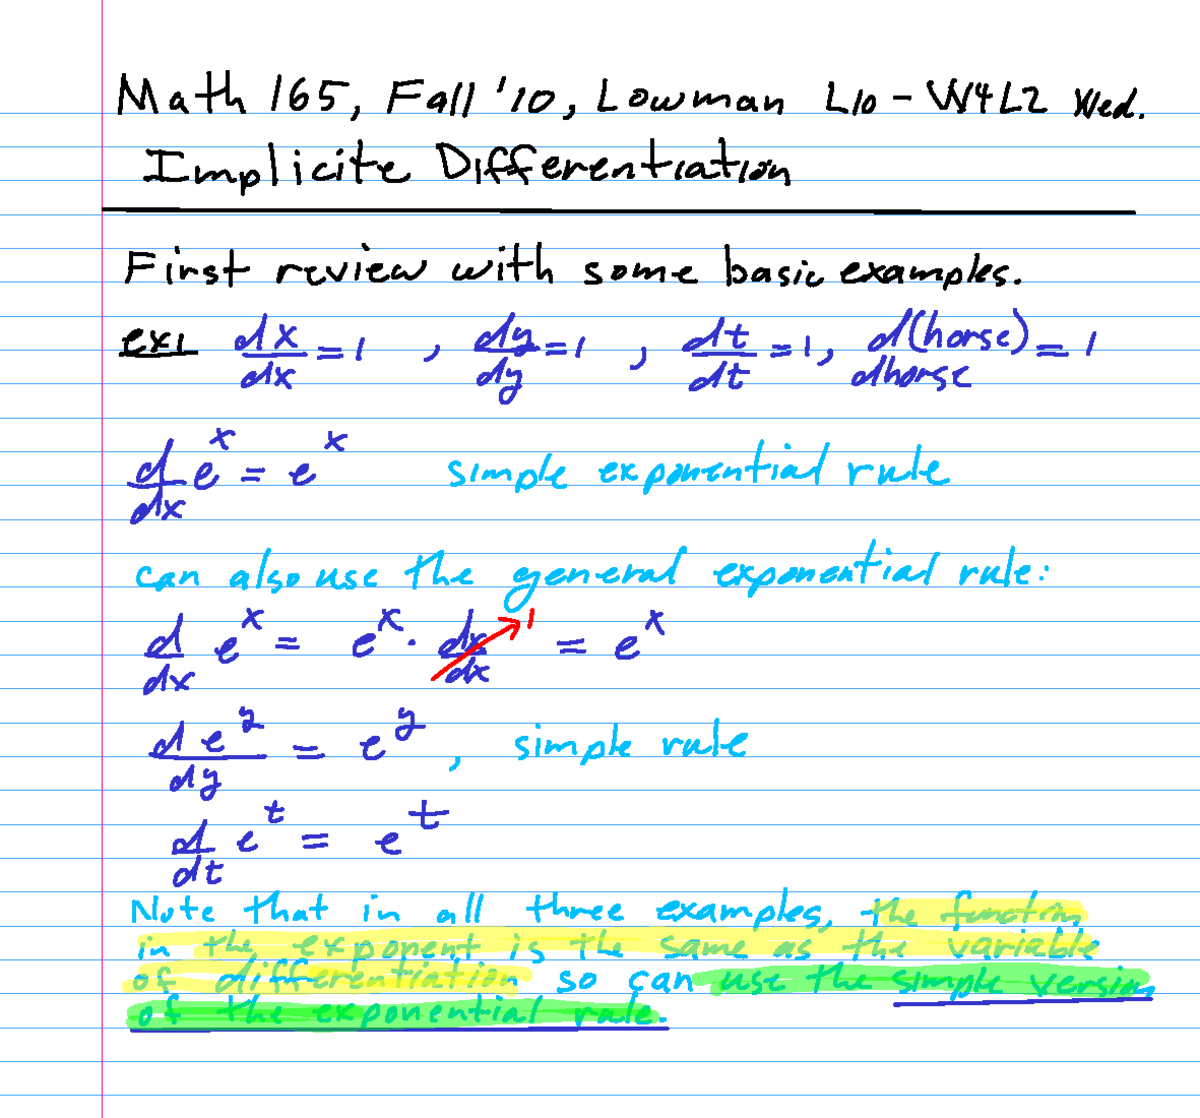 Math 165, Fall '10, Lowman L10 - W4L2 Wed.
Implicite Differentiation
First review with some basic examples.
ex1 dx/dx = 1 , dy/dy = 1 , dt/dt = 1, d(horse)/dhorse = 1
d/dx e^x = e^x simple exponential rule
can also use the general exponential rule:
d/dx e^x = e^x · dx/dx 1 = e^x
de^y/dy = e^y, simple rule
d/dt e^t = e^t
Note that in all three examples, the function
in the exponent is the same as the variable
of differentiation so can use the simple version
of the exponential rule.